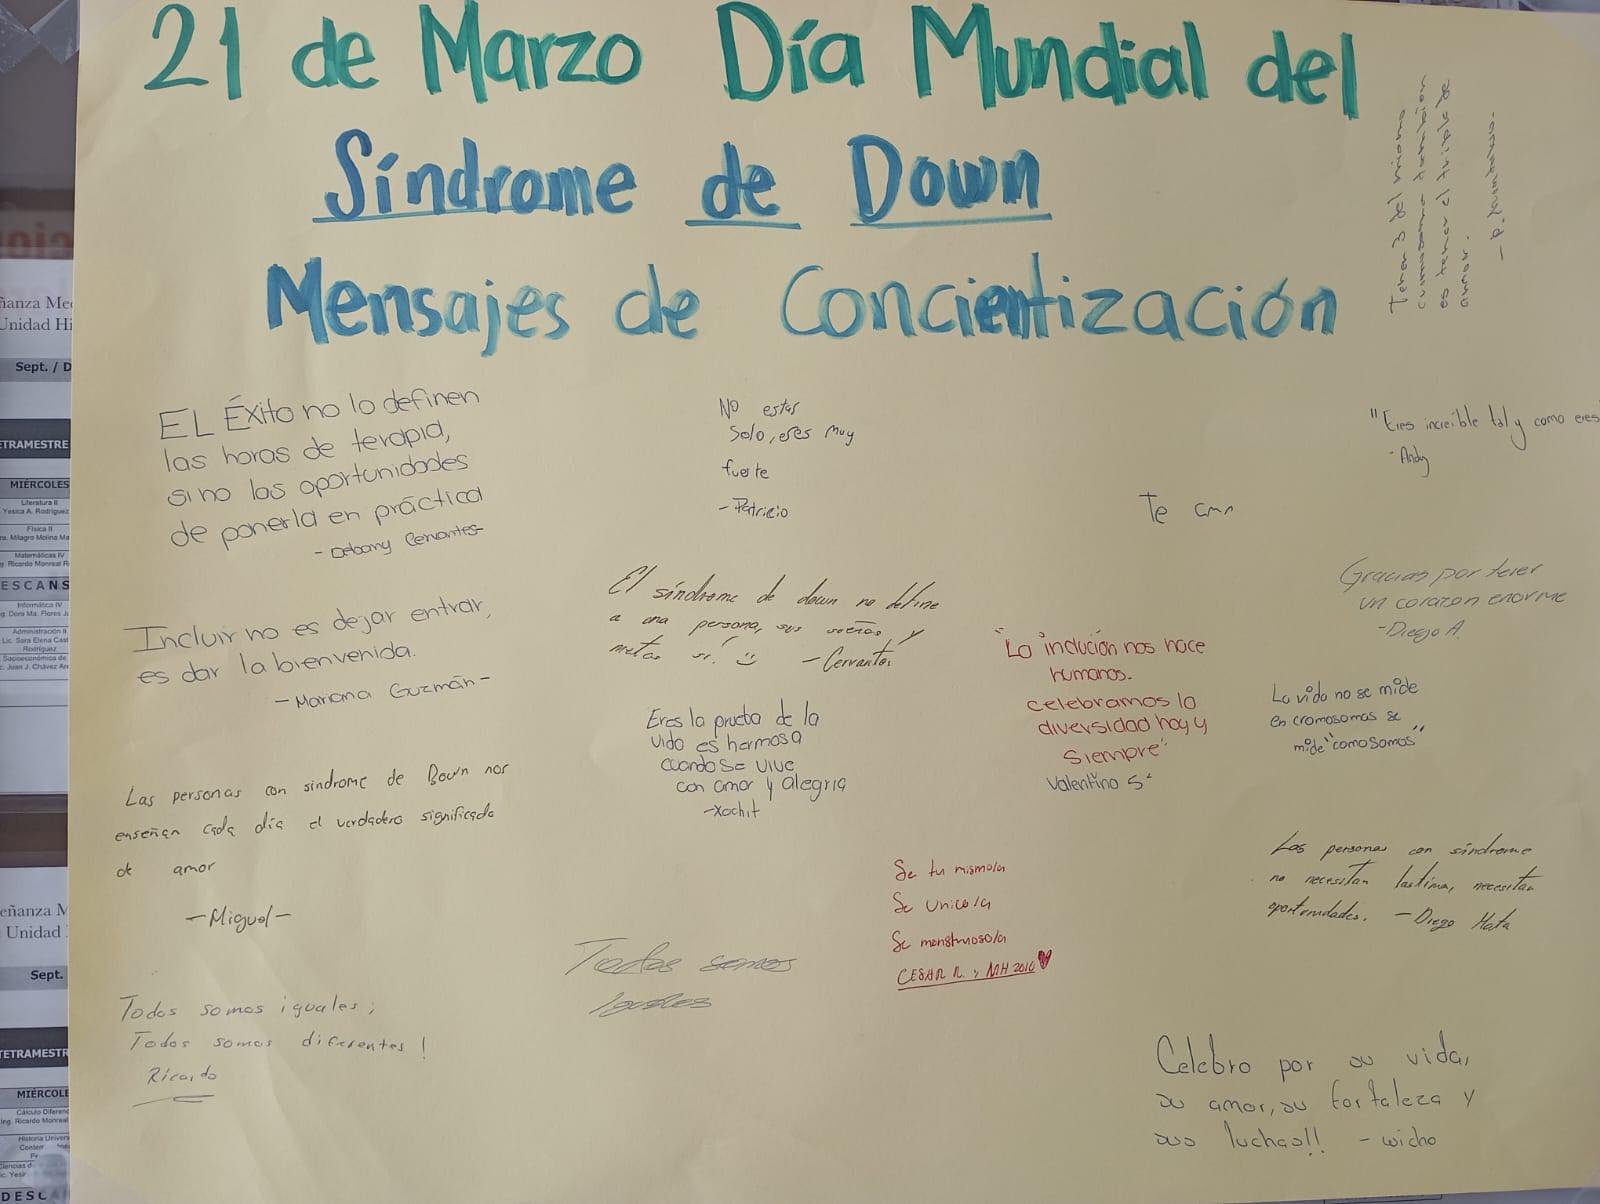 21 de Marzo Día Mundial del
Síndrome de Down
Mensajes de Concientización
Tener 3 del mismo
cromosoma también
es tener el triple de
amor.
EL Éxito no lo definen
las horas de terapia,
sino las oportunidades
de ponerla en práctica
- Debany Cervantes-
No estas
Solo, eres muy
fuerte
- Patricio
"Eres increíble tal y como eres
- Andy
Te am
Gracias por tener
un corazon enorme
- Diego A.
El síndrome de down no define
a una persona, sus sueños y
metas sí! :) - Cervantes
Incluir no es dejar entrar,
es dar la bienvenida.
- Mariana Guzmán -
"La inclución nos hace
humanos.
celebramos la
diversidad hoy y
siempre"
Valentino S
La vida no se mide
en cromosomas se
mide "como somos"
Eres la prueba de la
vida es hermosa
cuando se vive
con amor y alegria
- Xochit
Las personas con sindrome de Down nos
enseñan cada día el verdadero significado
de amor
- Miguel -
Las personas con síndrome
no necesitan lastima, necesitan
oportunidades. - Diego Mata
Se tu mismo/a
Se unico/a
Se monstruoso/a
CESAR R. y MH 2010 ♥
Todos somos
Iguales
Todos somos iguales;
Todos somos diferentes!
Ricardo
Celebro por su vida,
su amor, su fortaleza y
sus luchas!! - wicho
ñanza Me
Unidad Hi
Sept. / D
TETRAMESTRE
MIÉRCOLES
Literatura II
Yesica A. Rodríguez
Física II
ra. Milagro Molina Ma
Matemáticas IV
g. Ricardo Monreal R
ESCANS
Informática IV
g. Dora Ma. Flores J
Administración II
Lic. Sara Elena Cast
Rodríguez
Socioeconómica de
c. Juan J. Chávez An
eñanza M
Unidad
Sept.
TETRAMESTR
MIÉRCOLE
Cálculo Diferenc
Ing. Ricardo Monreal
Historia Univers
Ciencias d
ic. Yesi
DESC